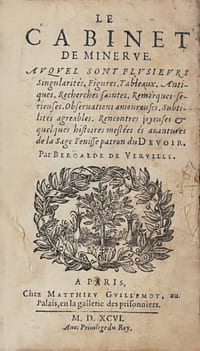 LE
CABINET
DE MINERVE.
AVQVEL SONT PLVSIEVRS
Singularités, Figures, Tableaux. Anti-
ques. Recherches saintes. Remarques se-
rieuses. Observations amoureuses. Subti-
lités agreables. Rencontres joyeuses &
quelques histoires meslées és avantures
de la Sage Fenisse patron du DEVOIR.
Par BEROALDE DE VERVILLE.
A PARIS,
Chez MATTHIEV GVILLEMOT, au
Palais, en la gallerie des prisonniers.
M. D. XCVI.
Avec Privilege du Roy.